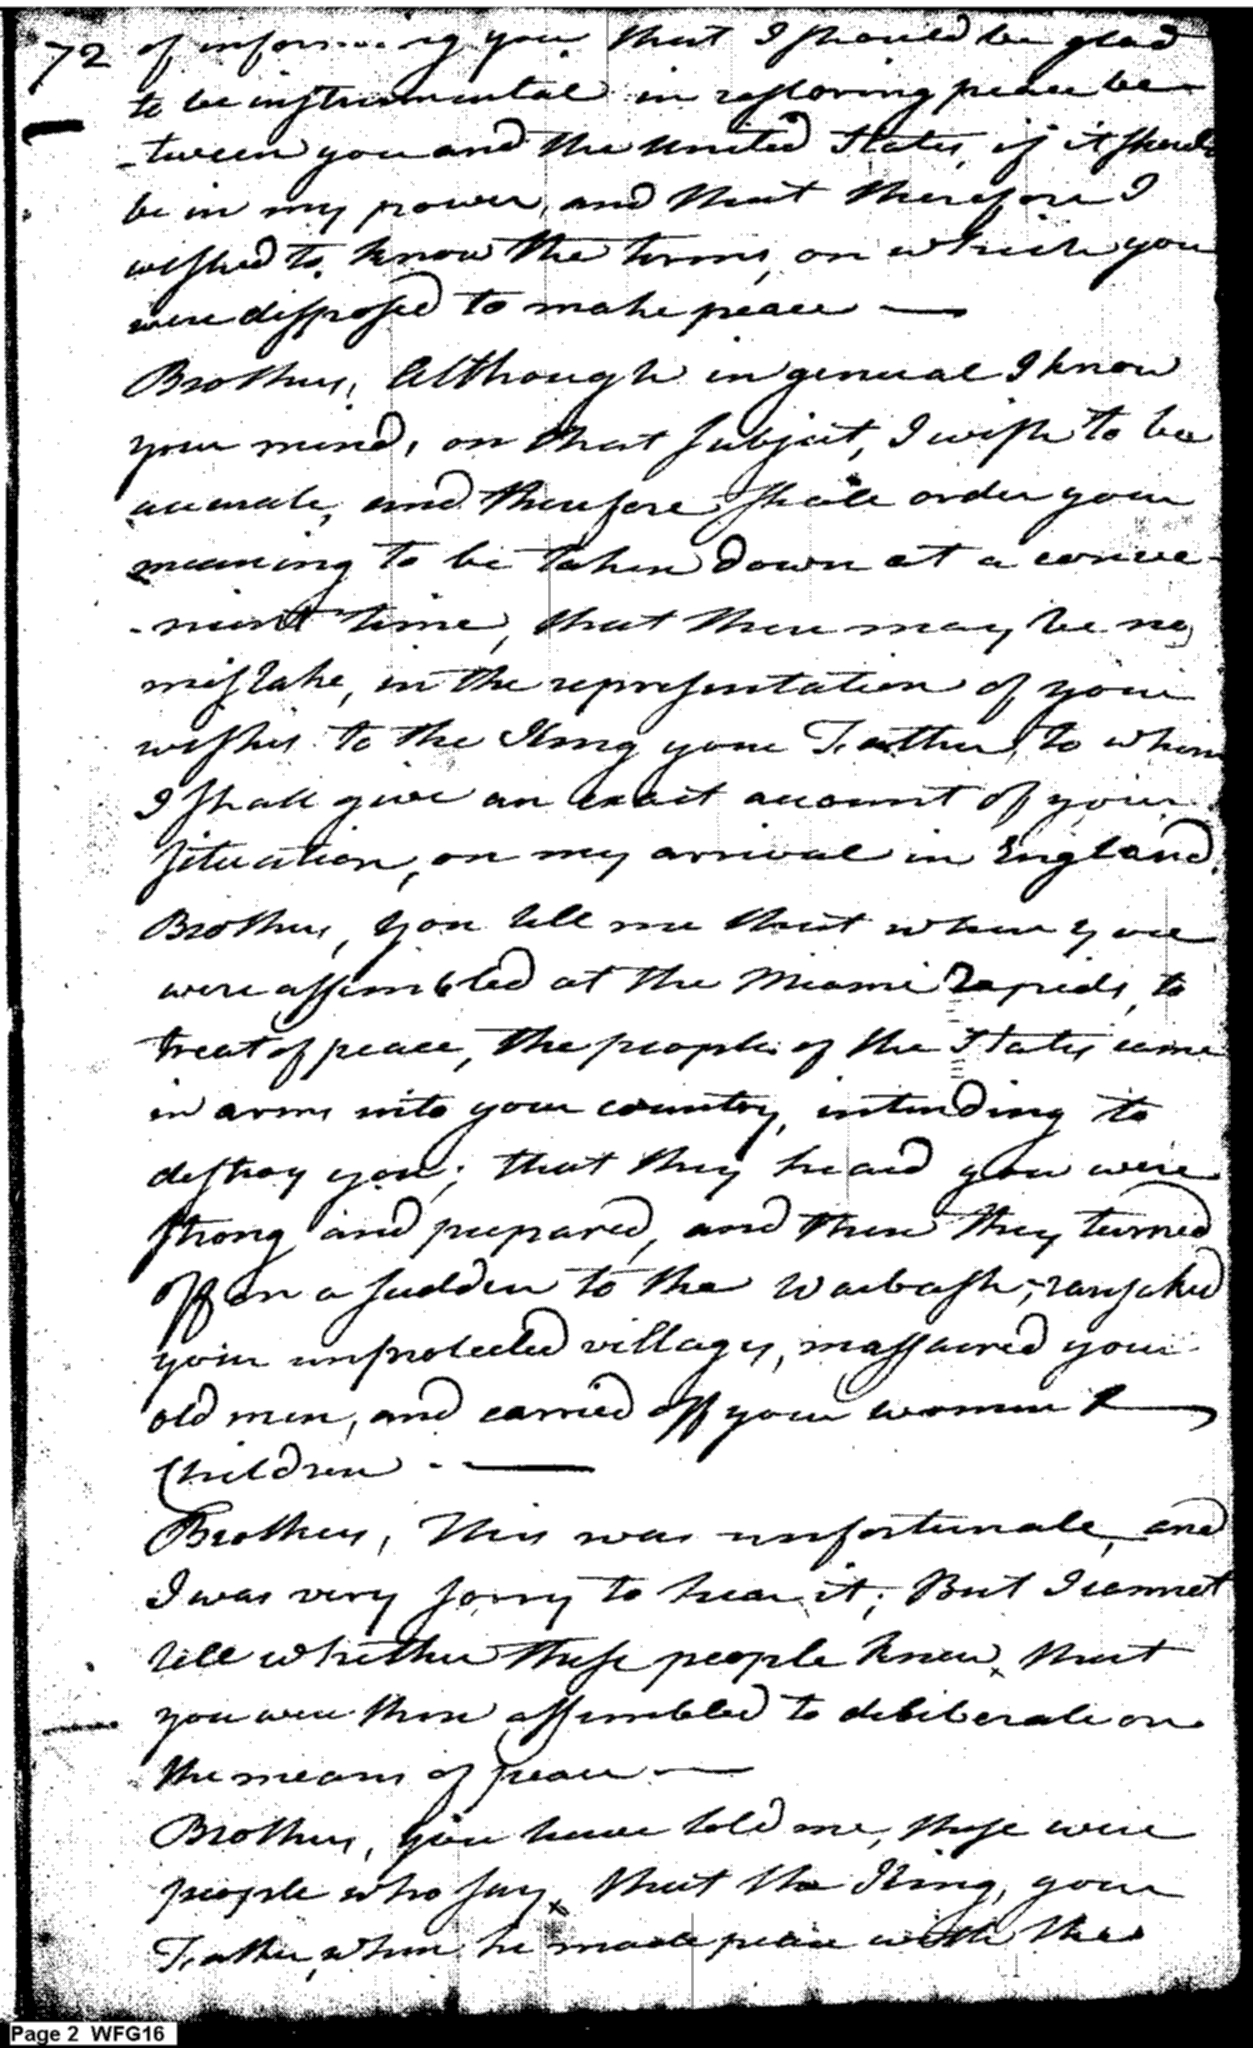 72 of informing you that I should be glad
to be instrumental in restoring peace be-
-tween you and the United States, if it should
be in my power, and that therefore I
wished to know the terms, on which you
were disposed to make peace —
Brothers, Although in general I know
your mind, on that subject, I wish to be
accurate, and therefore shall order your
meaning to be taken down at a conve-
-nient time, that there may be no
mistake, in the representation of your
wishes to the King your Father, to whom
I shall give an exact account of your
situation, on my arrival in England.
Brothers, you tell me that when you
were assembled at the Miami Rapids, to
treat of peace, the people of the States came
in arms into your country, intending to
destroy you; that they heard you were
strong and prepared, and then they turned
off on a sudden to the Waibash; ransaked
your unprotected villages, massacred your
old men, and carried off your women &
Children —
Brothers, This was unfortunate, and
I was very sorry to hear it; But I cannot
tell whether these people knew, that
you were then assembled to deliberate on
the means of peace —
Brothers, you have told me, these were
people who say, that the King, your
Father, when he made peace with the
Page 2 WFG16